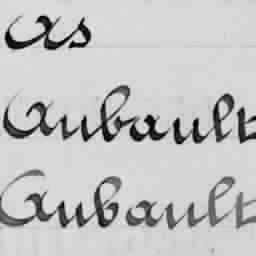 As
Aubault
Aubault